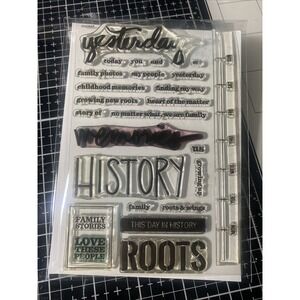 yesterday
today you and
family photos my people yesterday
childhood memories finding my way
growing new roots heart of the matter
story of no matter what, we are family
memories
HISTORY
growing up
family roots & wings
FAMILY
STORIES
THIS DAY IN HISTORY
LOVE
THESE
PEOPLE
ROOTS